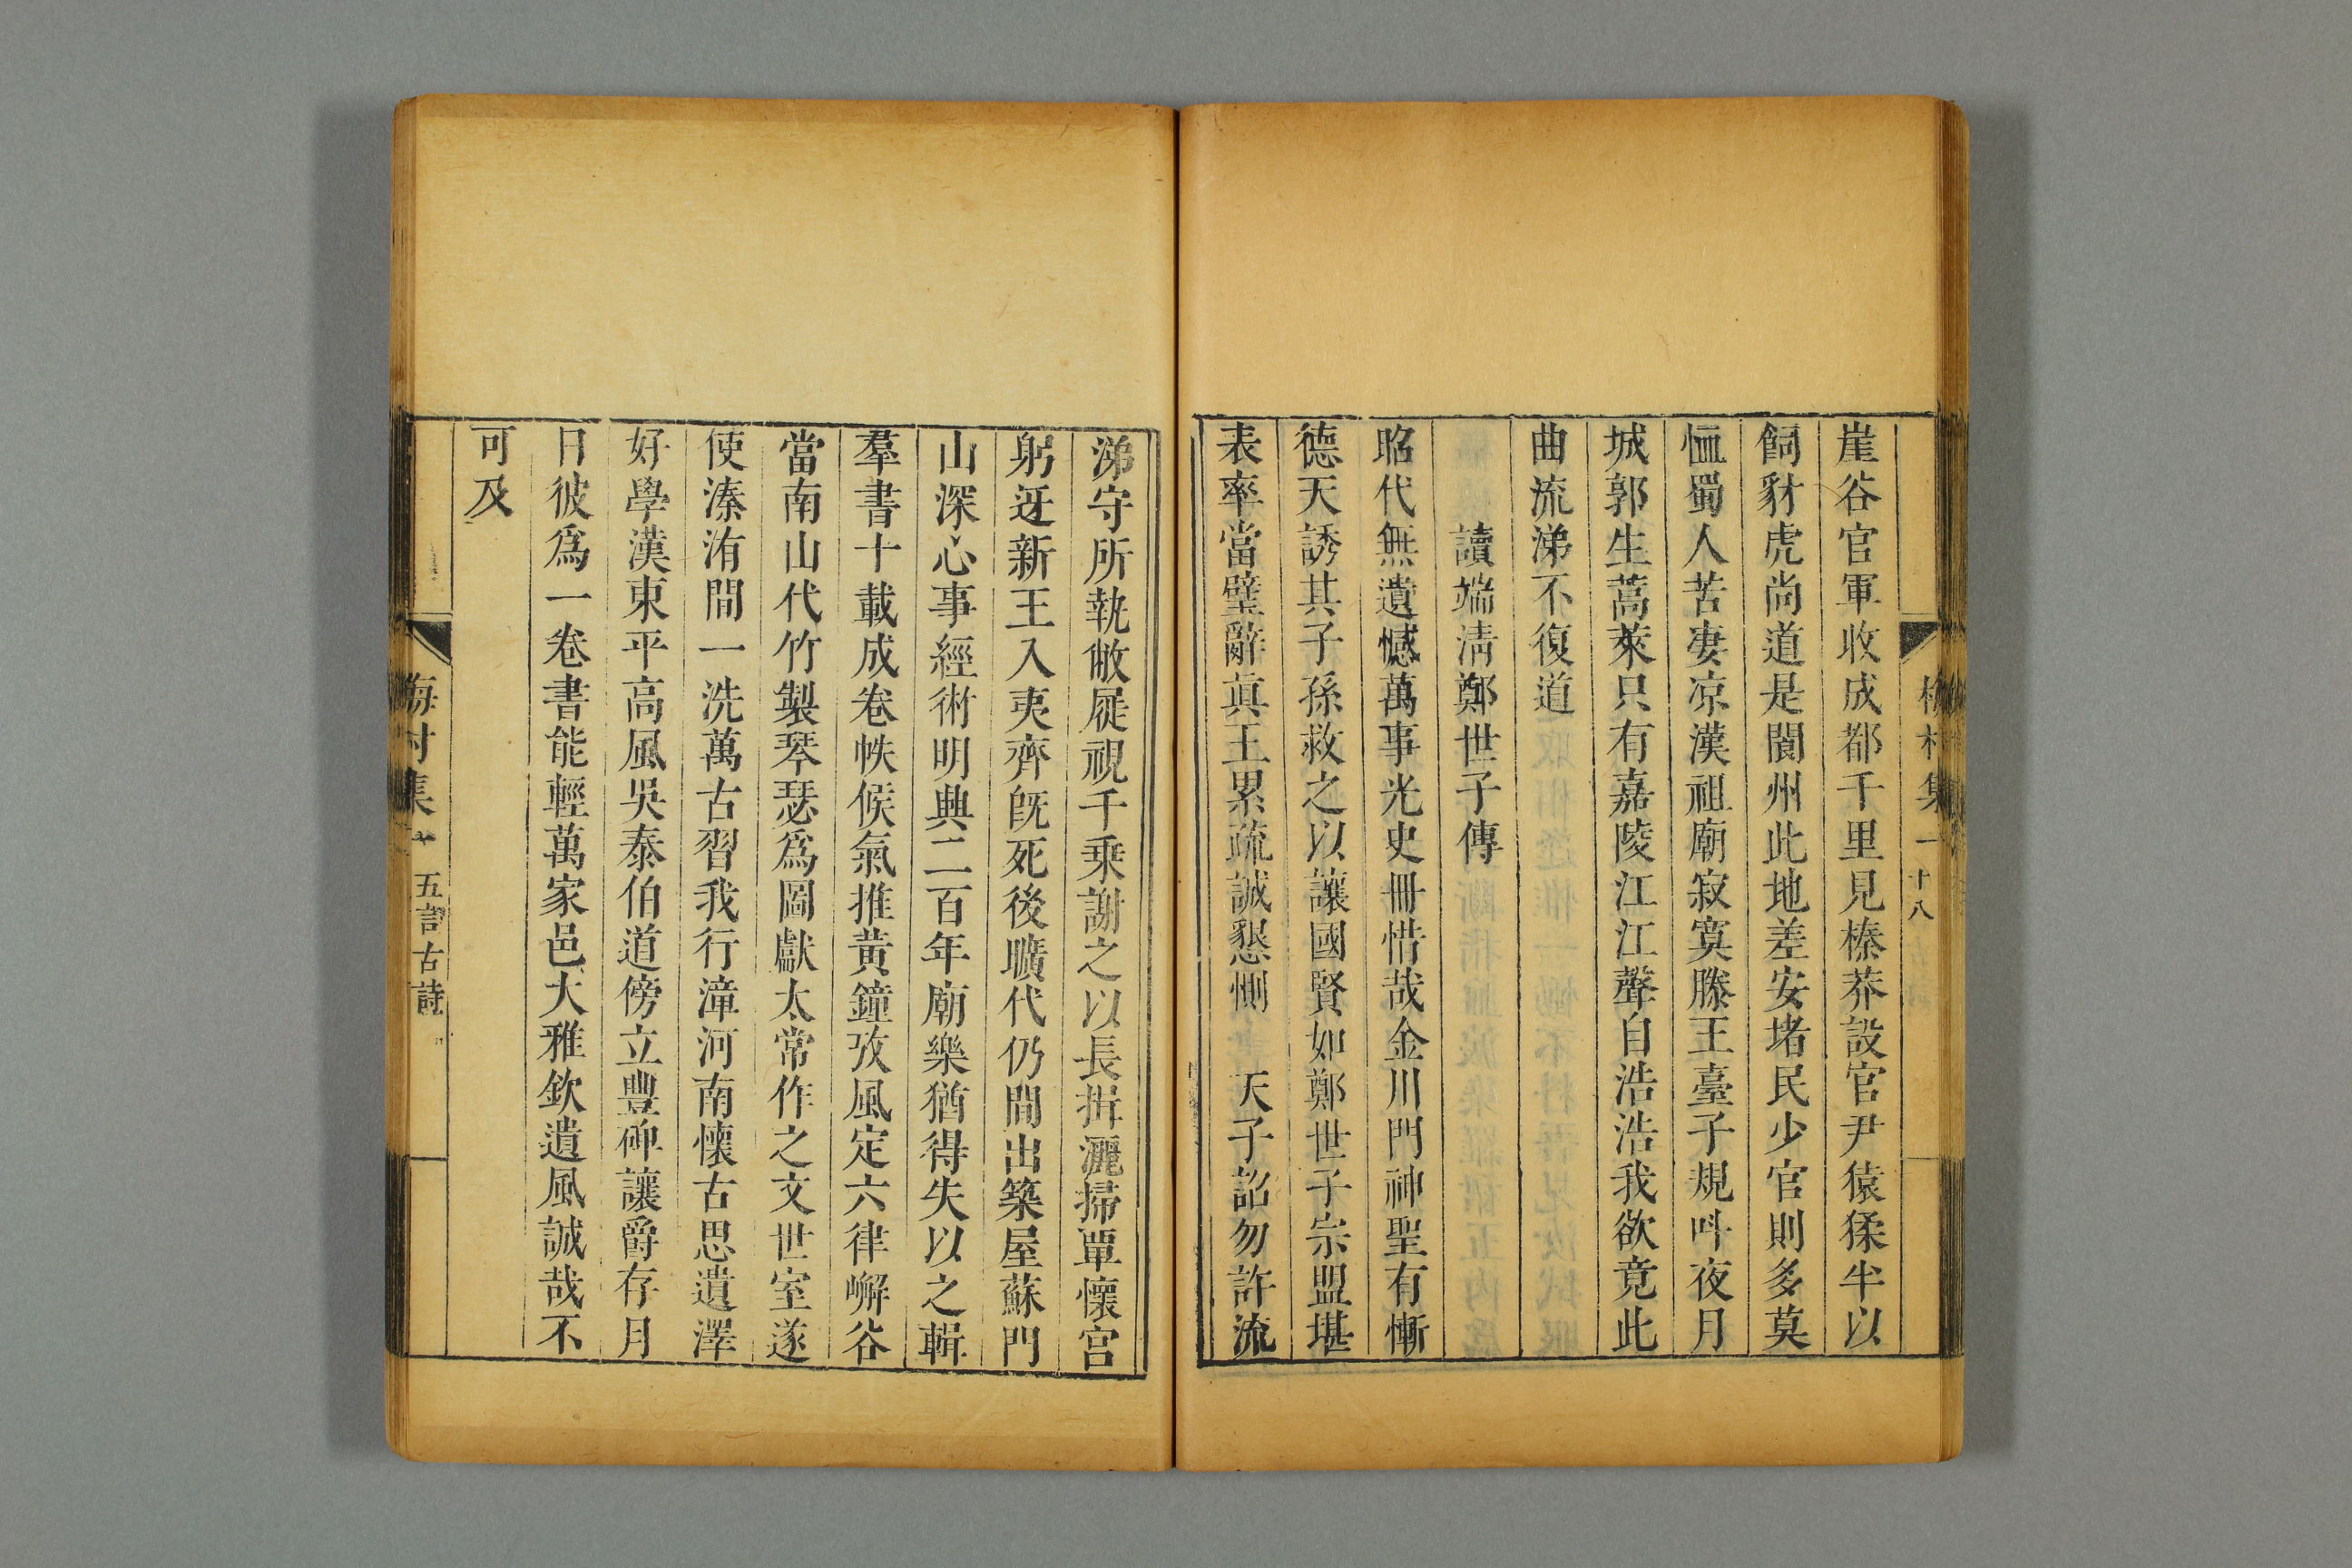 崖谷官軍收成都千里見榛莽設官尹猿猱半以
飼豺虎尚道是閬州此地差安堵民少官則多莫
恤蜀人苦凄凉漢祖廟寂寞滕王臺子規呌夜月
城郭生蒿萊只有嘉陵江江聲自浩浩我欲竟此
曲流涕不復道
讀端淸鄭世子傳
昭代無遺憾萬事光史冊惜哉金川門神聖有慚
德天誘其子孫救之以讓國賢如鄭世子宗盟堪
表率當璧辭眞王累疏誠懇惻天子詔勿許流
涕守所執敝屣視千乗謝之以長揖灑掃覃懷宫
躬迓新王入夷齊旣死後曠代仍間出築屋蘇門
山深心事經術明興二百年廟樂猶得失以之輯
羣書十載成卷帙候氣推黃鐘攷風定六律嶰谷
當南山代竹製琴瑟爲圖獻太常作之文世室遂
使溱洧間一洗萬古習我行漳河南懷古思遺澤
好學漢東平高風吳泰伯道傍立豐碑讓爵存月
日彼爲一卷書能輕萬家邑大雅欽遺風誠哉不
可及
梅村集 一 十八
梅村集 五言古詩